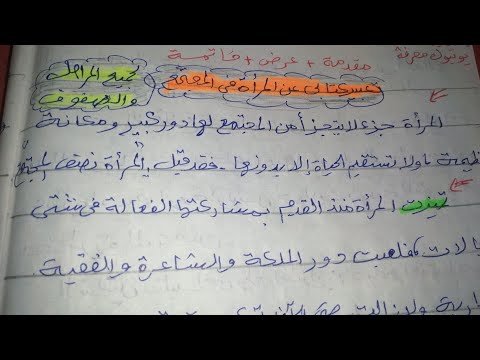 يوتيوب معرفة
مقدمة + عرض + خاتمة
لجميع المراحل والصفوف
تعبير كتابي عن المرأة في المجتمع
المرأة جزء لا يتجزأ من المجتمع لها دور كبير ومكانة
عظيمة ولا تستقيم الحياة إلا بدونها. فقد قيل "المرأة نصف المجتمع
تميزت المرأة منذ القديم بمشاركتها الفعالة في شتى
المجالات فلعبت دور الملكة والشاعرة والفقيهة